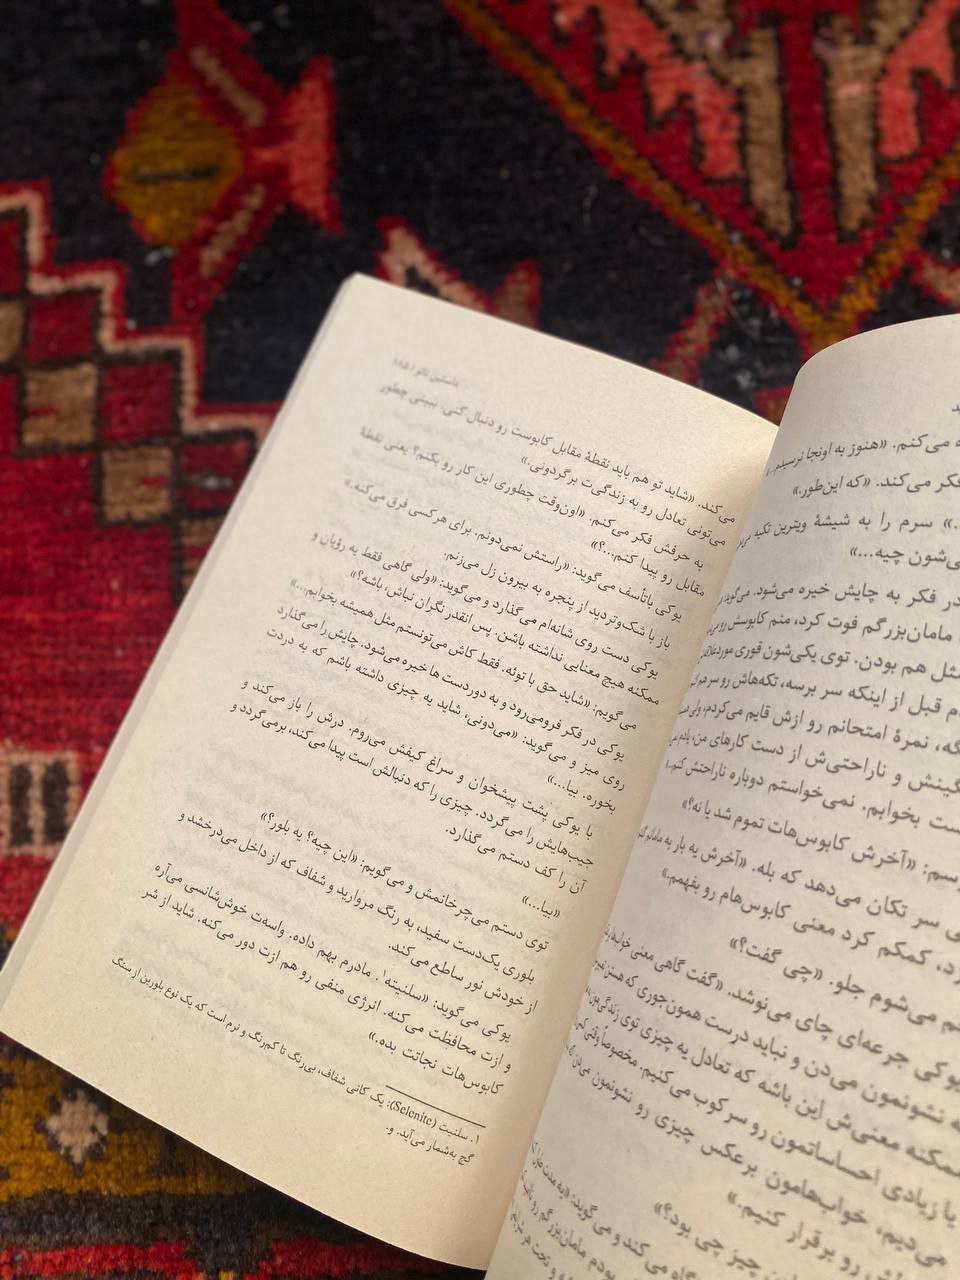 می‌کنم. «هنوز به اونجا نرسیدم.»
فکر می‌کند. «که این‌طور.»
سرم را به شیشهٔ ویترین تکیه
شون چیه...»
در فکر به چایش خیره می‌شود.
مامان‌بزرگم فوت کرد، منم کابوسش رو
مثل هم بودن. توی یکی‌شون قوری موردعلاقهٔ
قبل از اینکه سر برسه، تکه‌هاش رو سر هم
نمرهٔ امتحانم رو ازش قایم می‌کردم، ولی
و ناراحتی‌ش از دست کارهای من، یادم
بخوابم. نمی‌خواستم دوباره ناراحتش کنم.»
«آخرش کابوس‌هات تموم شد یا نه؟»
سر تکان می‌دهد که بله. «آخرش یه بار به
کمکم کرد معنی کابوس‌هام رو بفهمم.»
می‌شوم جلو. «چی گفت؟»
یوکی جرعه‌ای چای می‌نوشد. «گفت گاهی معنی
نشونمون می‌دن و نباید درست همون‌جوری که هستن
ممکنه معنی‌ش این باشه که تعادل یه چیزی توی زندگی‌مون
یا زیادی احساساتمون رو سرکوب می‌کنیم. مخصوصاً وقتی
می‌دیم، خواب‌هامون برعکس چیزی رو نشونمون می‌دن
رو برقرار کنیم.»
چیز چی بود؟»
می کند و می‌گوید: «یه مدت
بودم مامان‌بزرگم رو
داستین تائو | ۱۸۵
می‌کند. «شاید تو هم باید نقطهٔ مقابل کابوست رو دنبال کنی. ببینی چطور
می‌تونی تعادل رو به زندگی‌ت برگردونی.»
به حرفش فکر می‌کنم. «اون‌وقت چطوری این کار رو بکنم؟ یعنی نقطهٔ
مقابل رو پیدا کنم...؟»
یوکی باتأسف می‌گوید: «راستش نمی‌دونم. برای هرکسی فرق می‌کنه.»
باز با شک‌وتردید از پنجره به بیرون زل می‌زنم.
یوکی دست روی شانه‌ام می‌گذارد و می‌گوید: «ولی گاهی فقط یه رؤیان و
ممکنه هیچ معنایی نداشته باشن. پس انقدر نگران نباش، باشه؟»
می‌گویم: «شاید حق با توئه. فقط کاش می‌تونستم مثل همیشه بخوابم...»
یوکی در فکر فرومی‌رود و به دوردست‌ها خیره می‌شود. چایش را می‌گذارد
روی میز و می‌گوید: «می‌دونی، شاید یه چیزی داشته باشم که به دردت
بخوره. بیا...»
با یوکی پشت پیشخوان و سراغ کیفش می‌روم. درش را باز می‌کند و
جیب‌هایش را می‌گردد. چیزی را که دنبالش است پیدا می‌کند، برمی‌گردد و
آن را کف دستم می‌گذارد.
«بیا...»
توی دستم می‌چرخانمش و می‌گویم: «این چیه؟ یه بلور؟»
بلوری یک‌دست سفید، به رنگ مروارید و شفاف که از داخل می‌درخشد و
از خودش نور ساطع می‌کند.
یوکی می‌گوید: «سلنیته۱. مادرم بهم داده. واسه‌ت خوش‌شانسی می‌آره
و ازت محافظت می‌کنه. انرژی منفی رو هم ازت دور می‌کنه. شاید از شر
کابوس‌هات نجاتت بده.»
۱. سلنیت (Selenite): یک کانی شفاف، بی‌رنگ تا کم‌رنگ و نرم است که یک نوع بلورین از سنگ
گچ به‌شمار می‌آید. و.